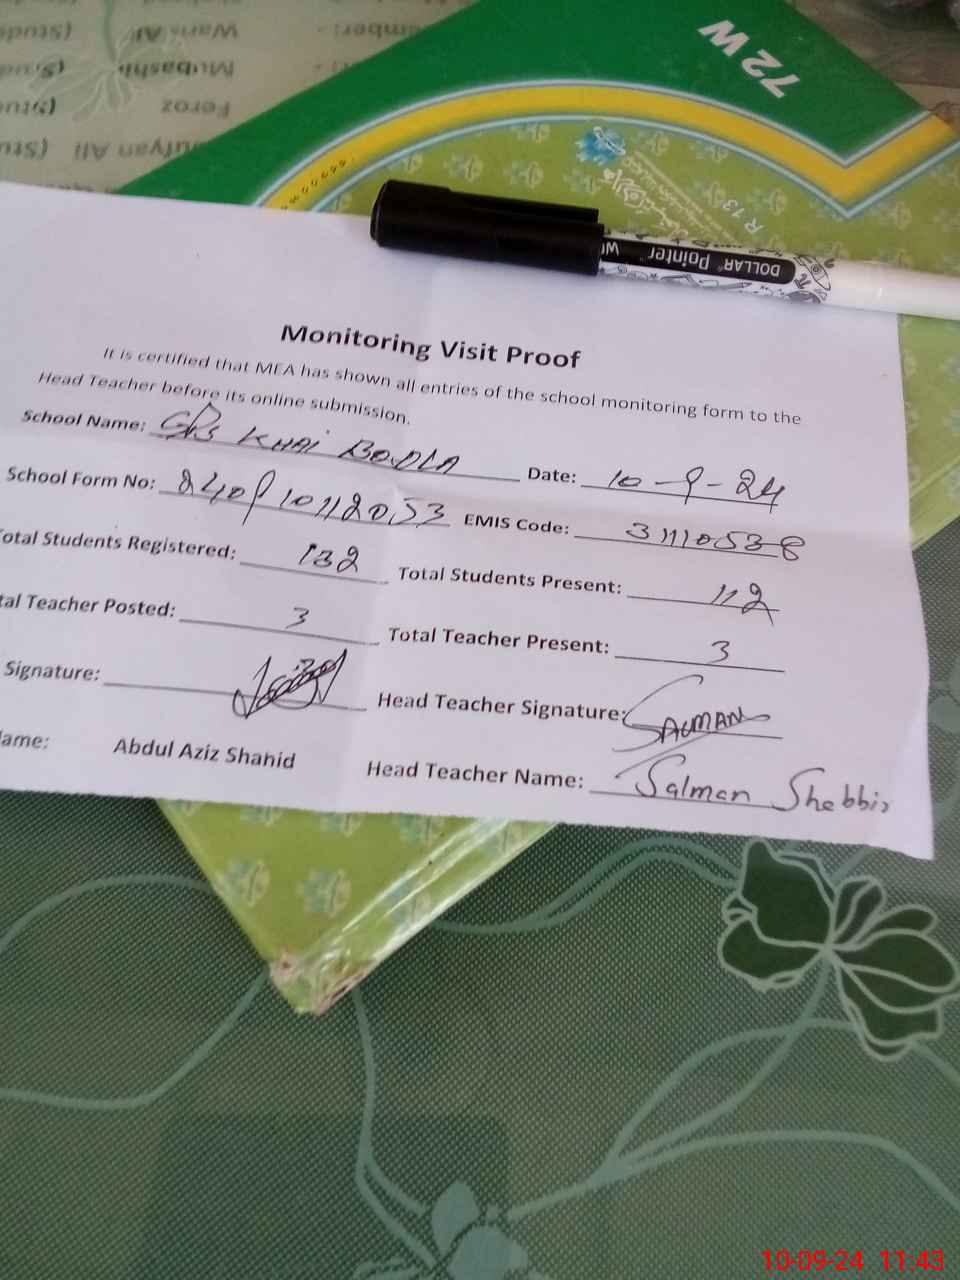 72 W
Waris Ali (Stud
Mubashir
Feroz (Stu
ufyan Ali (Stu
R 13
DOLLAR Pointer
Monitoring Visit Proof
It is certified that MEA has shown all entries of the school monitoring form to the
Head Teacher before its online submission.
School Name: GPS KHAI BODLA Date: 10-9-24
School Form No: 240910112053 EMIS Code: 31110538
otal Students Registered: 132 Total Students Present: 112
tal Teacher Posted: 3 Total Teacher Present: 3
Signature: Head Teacher Signature: SALMAN
ame: Abdul Aziz Shahid Head Teacher Name: Salman Shebbir
10-09-24 11:43